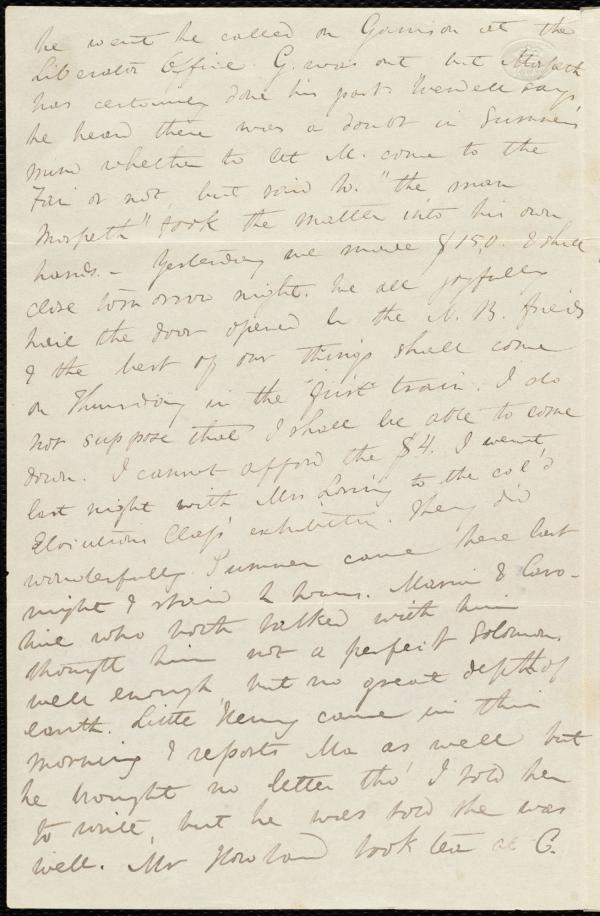 he went he called on Garrison at the
Liberator Office. G. was out but Morpeth
has certainly done his part. Wendell says
he heard there was a doubt in Sumner's
mind whether to let M. come to the
Fair or not, but said W. "the man
Morpeth" took the matter into his own
hands. - Yesterday we made $150. I shall
close tomorrow night. We all joyfully
hail the door opened by the N. B. friends
& the best of our things shall come
on Thursday in the first train. I do
not suppose that I shall be able to come
down. I cannot afford the $4. I went
last night with Mrs Loring to the col'd
Elocution Class' exhibition. They did
wonderfully. Sumner came here last
night & staid 2 hours. Maria & Caro-
line who both talked with him
thought him not a perfect Solomon.
well enough, but no great depth of
earth. Little Henry came in this
morning & reports Ma as well but
he brought no letter tho' I told her
to write, but he was told she was
well. Mr Howland took tea at C.